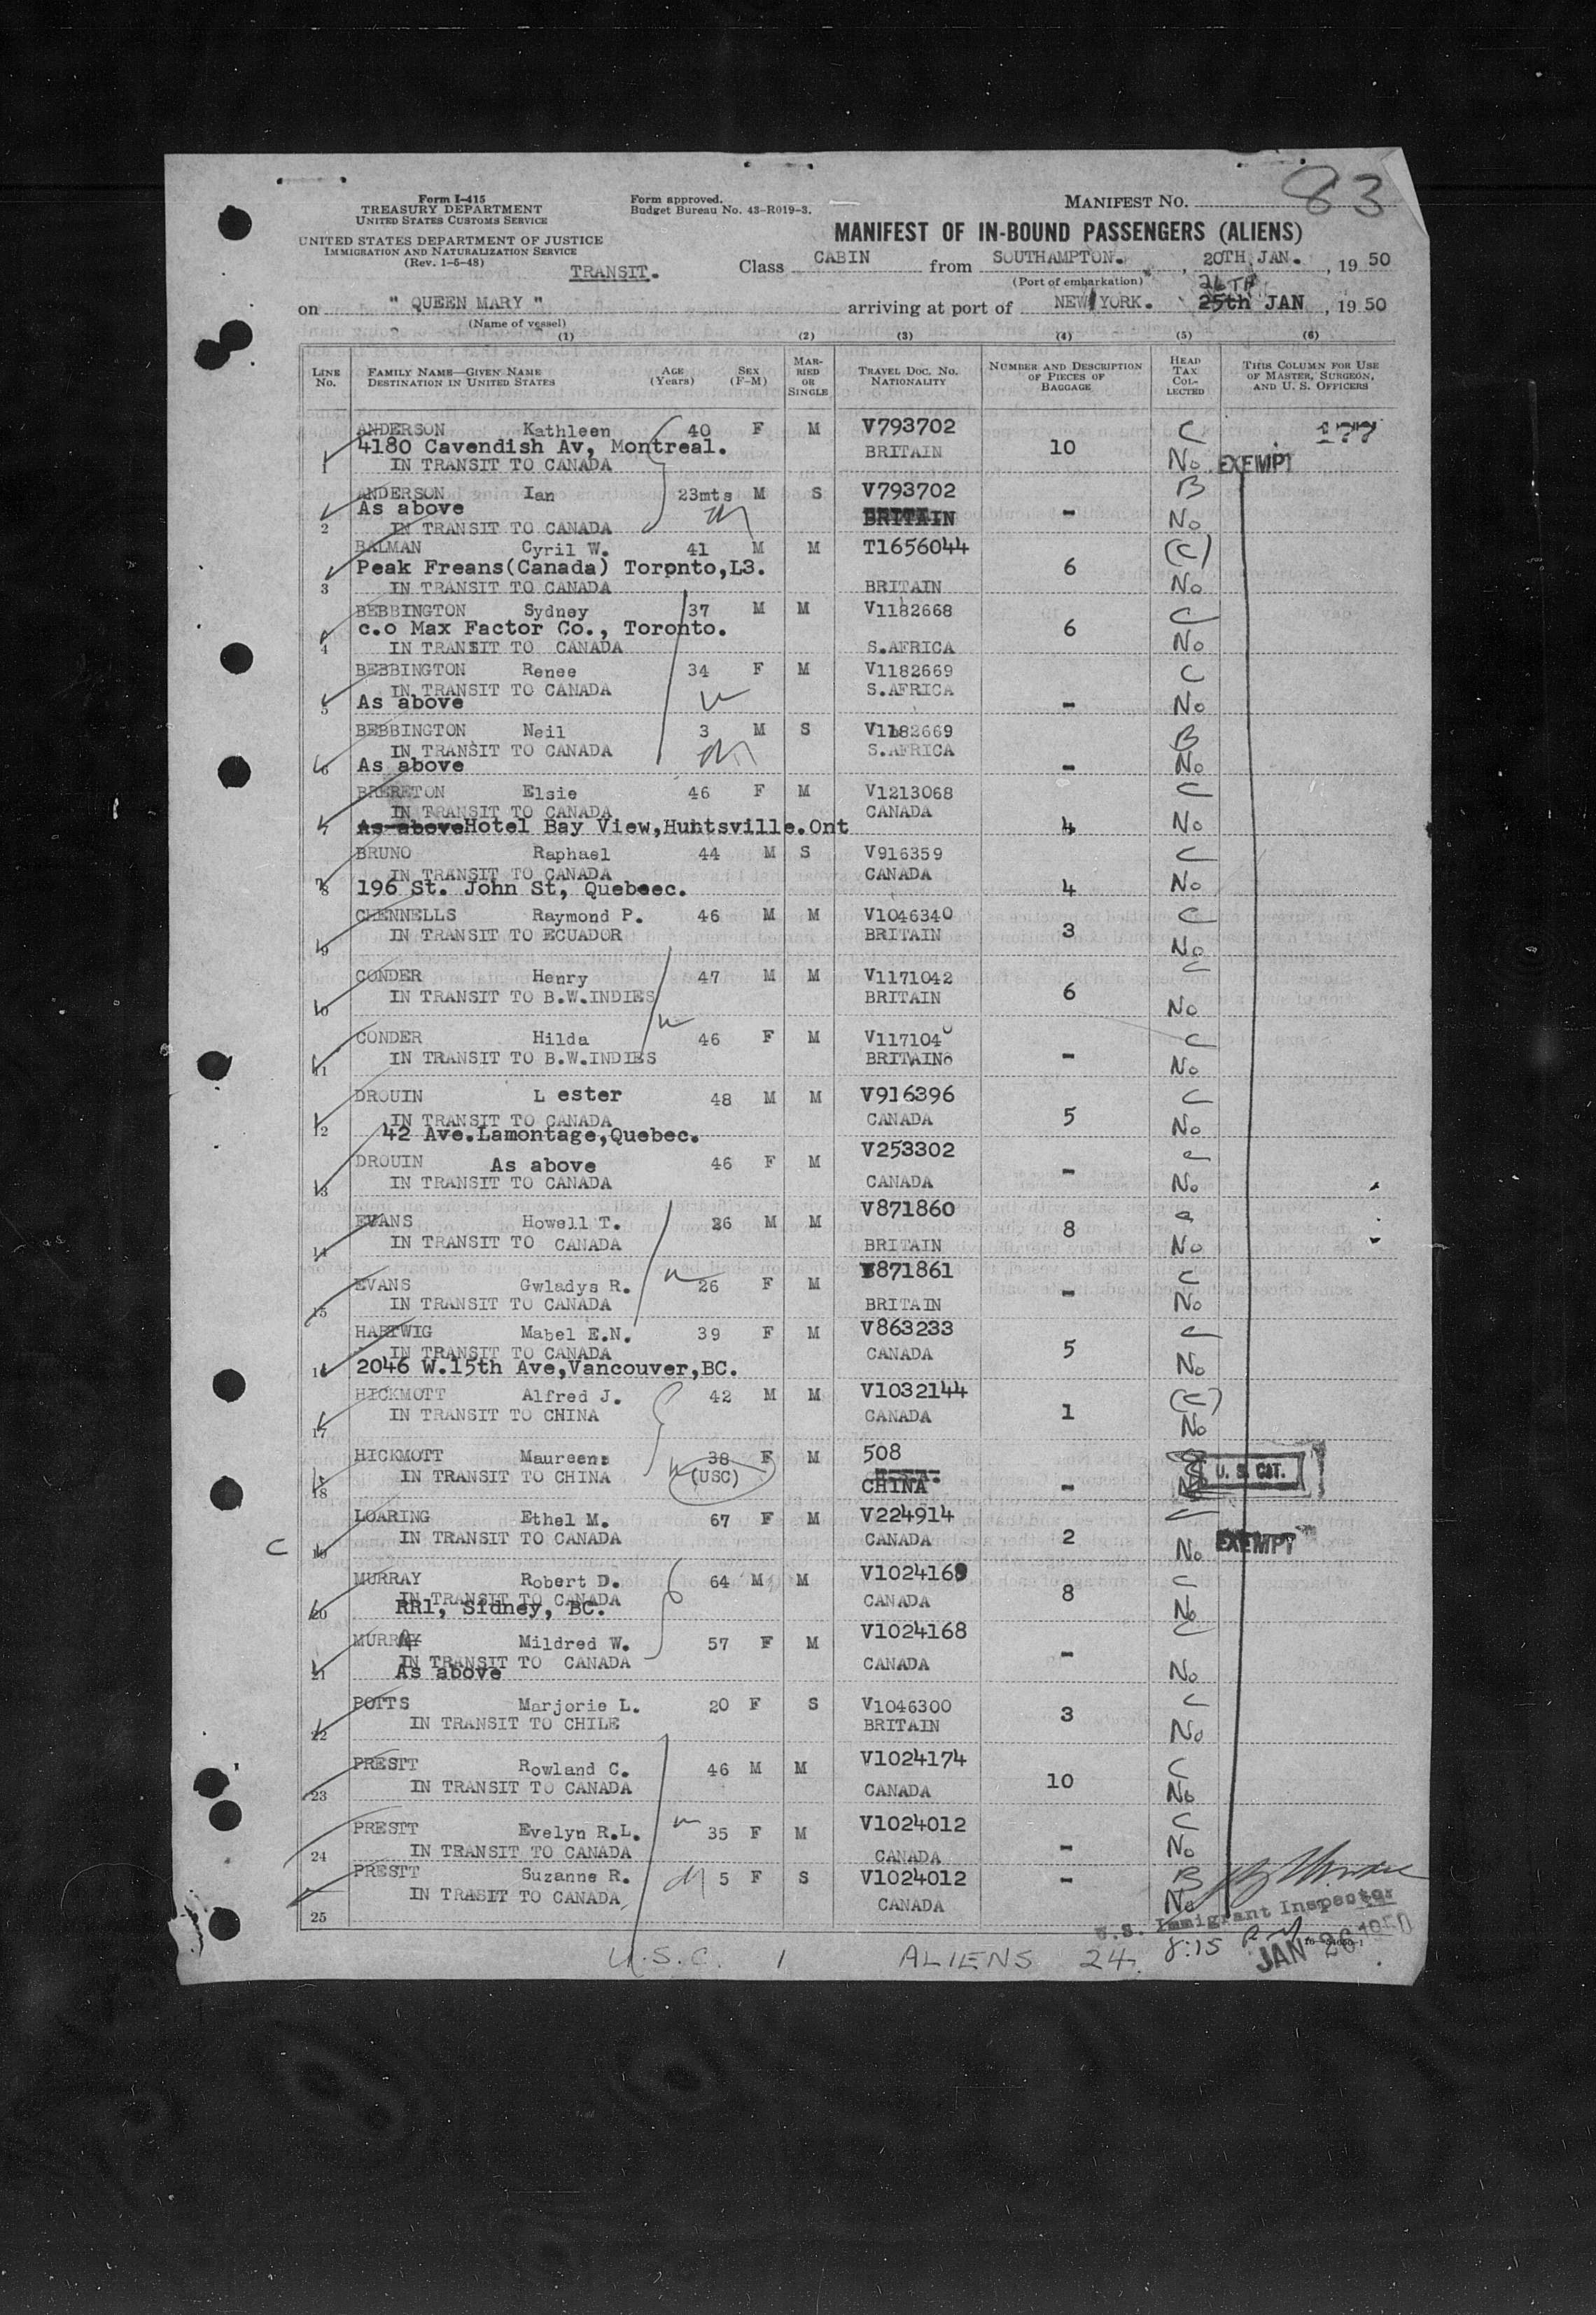 83
Form I-415
TREASURY DEPARTMENT
UNITED STATES CUSTOMS SERVICE
Form approved.
Budget Bureau No. 43-R019-3.
MANIFEST NO.
UNITED STATES DEPARTMENT OF JUSTICE
IMMIGRATION AND NATURALIZATION SERVICE
(Rev. 1-5-48)
MANIFEST OF IN-BOUND PASSENGERS (ALIENS)
TRANSIT.
Class CABIN from SOUTHAMPTON. , 20TH JAN. , 19 50
(Port of embarkation)
26TH
on " QUEEN MARY " arriving at port of NEW YORK. 25th JAN , 19 50
(Name of vessel)
(1) (2) (3) (4) (5) (6)
LINE No. FAMILY NAME—GIVEN NAME DESTINATION IN UNITED STATES AGE (Years) SEX (F-M) MARRIED OR SINGLE TRAVEL DOC. NO. NATIONALITY NUMBER AND DESCRIPTION OF PIECES OF BAGGAGE HEAD TAX COLLECTED THIS COLUMN FOR USE OF MASTER, SURGEON, AND U. S. OFFICERS
ANDERSON Kathleen 40 F M V793702 C
4180 Cavendish Av, Montreal. BRITAIN 10
1 IN TRANSIT TO CANADA No EXEMPT
ANDERSON Ian 23mts M S V793702 B
As above BRITAIN -
2 IN TRANSIT TO CANADA No
BALMAN Cyril W. 41 M M T1656044 (C)
Peak Freans(Canada) Toronto,L3. 6
3 IN TRANSIT TO CANADA BRITAIN No
BEBBINGTON Sydney 37 M M V1182668 C
c.o Max Factor Co., Toronto. 6
4 IN TRANSIT TO CANADA S.AFRICA No
BEBBINGTON Renee 34 F M V1182669 C
IN TRANSIT TO CANADA S.AFRICA
5 As above - No
BEBBINGTON Neil 3 M S V1182669 B
IN TRANSIT TO CANADA S.AFRICA
6 As above - No
BRERETON Elsie 46 F M V1213068 C
IN TRANSIT TO CANADA CANADA
7 As above Hotel Bay View,Huntsville.Ont 4 No
BRUNO Raphael 44 M S V916359 C
IN TRANSIT TO CANADA CANADA
8 196 St. John St, Quebeec. 4 No
CHENNELLS Raymond P. 46 M M V1046340 C
9 IN TRANSIT TO ECUADOR BRITAIN 3 No
CONDER Henry 47 M M V1171042 C
10 IN TRANSIT TO B.W.INDIES BRITAIN 6 No
CONDER Hilda 46 F M V117104 C
11 IN TRANSIT TO B.W.INDIES BRITAIN - No
DROUIN L ester 48 M M V916396 C
IN TRANSIT TO CANADA CANADA 5
12 42 Ave.Lamontage,Quebec. No
DROUIN As above 46 F M V253302 C
13 IN TRANSIT TO CANADA CANADA - No
EVANS Howell T. 26 M M V871860
14 IN TRANSIT TO CANADA BRITAIN 8 No
EVANS Gwladys R. 26 F M V871861 C
15 IN TRANSIT TO CANADA BRITAIN - No
HARTWIG Mabel E.N. 39 F M V863233 C
IN TRANSIT TO CANADA CANADA 5
16 2046 W.15th Ave,Vancouver,BC. No
HICKMOTT Alfred J. 42 M M V1032144 (C)
17 IN TRANSIT TO CHINA CANADA 1 No
HICKMOTT Maureen 38 F M 508
18 IN TRANSIT TO CHINA (USC) CHINA - U. S. CIT.
LOARING Ethel M. 67 F M V224914 C
C 19 IN TRANSIT TO CANADA CANADA 2 No EXEMPT
MURRAY Robert D. 64 M M V1024169 C
IN TRANSIT TO CANADA CANADA 8
20 RR1, Sidney, BC. No
MURRAY Mildred W. 57 F M V1024168 C
IN TRANSIT TO CANADA CANADA -
21 As above No
POTTS Marjorie L. 20 F S V1046300 C
22 IN TRANSIT TO CHILE BRITAIN 3 No
PRESTT Rowland C. 46 M M V1024174 C
23 IN TRANSIT TO CANADA CANADA 10 No
PRESTT Evelyn R.L. 35 F M V1024012 C
24 IN TRANSIT TO CANADA CANADA - No
PRESTT Suzanne R. 5 F S V1024012 B
IN TRANSIT TO CANADA CANADA - No
25
U.S. Immigrant Inspector
U.S.C. 1 ALIENS 24. 8:15 P.M JAN 26 1950